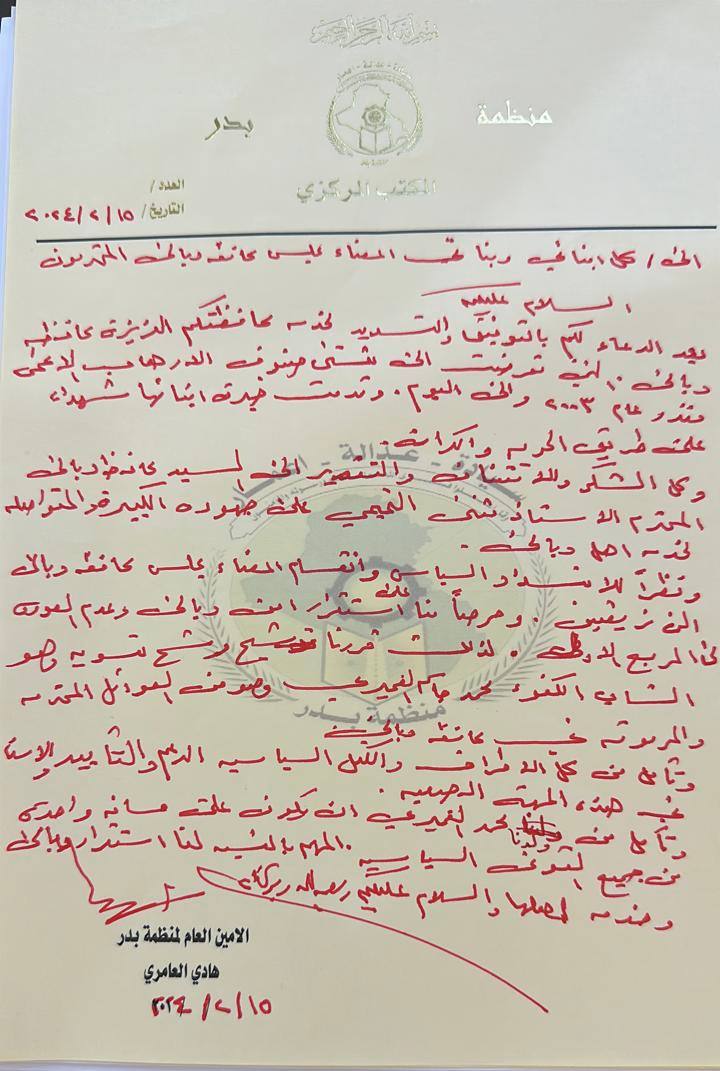 بسم الله الرحمن الرحيم
منظمة بدر
المكتب المركزي
العدد /
التاريخ / ٢٠٢٤/٢/١٥
الى / كل ابنائي وبناتي اعضاء مجلس محافظة ديالى المحترمون
السلام عليكم
بعد الدعاء لكم بالتوفيق والتسديد لخدمة محافظتكم العزيزة محافظة
ديالى التي تعرضت الى شتى صنوف الارهاب الاعمى
منذ عام ٢٠٠٣ والى اليوم. وقدمت خيرة ابنائها شهداء
على طريق الحرية والكرامة.
وكل الشكر والامتنان والتقدير الى السيد محافظ ديالى
المحترم الاستاذ مثنى التميمي على جهوده الكبيرة والمتواصلة
لخدمة اهل ديالى.
ونظراً للانسداد السياسي وانقسام اعضاء مجلس محافظة ديالى
الى فريقين. وحرصاً منا على استقرار امن ديالى وعدم العودة
الى المربع الاول. لذلك قررنا ترشيح مرشح تسوية وهو
الشاب الكفوء محمد جاسم العميري وهو من العوائل المحترمة
والمرموقة في محافظة ديالى
ونأمل من كل الاطراف والكتل السياسية الدعم والتأييد والاسناد
في هذه المهمة الصعبة.
ونأمل من ولدنا محمد العميري ان يكون على مسافة واحدة
من جميع القوى السياسية. المهم بالنسبة لنا استقرار ديالى
وخدمة اهلها والسلام عليكم ورحمة الله وبركاته
الامين العام لمنظمة بدر
هادي العامري
٢٠٢٤/٢/١٥
منظمة بدر